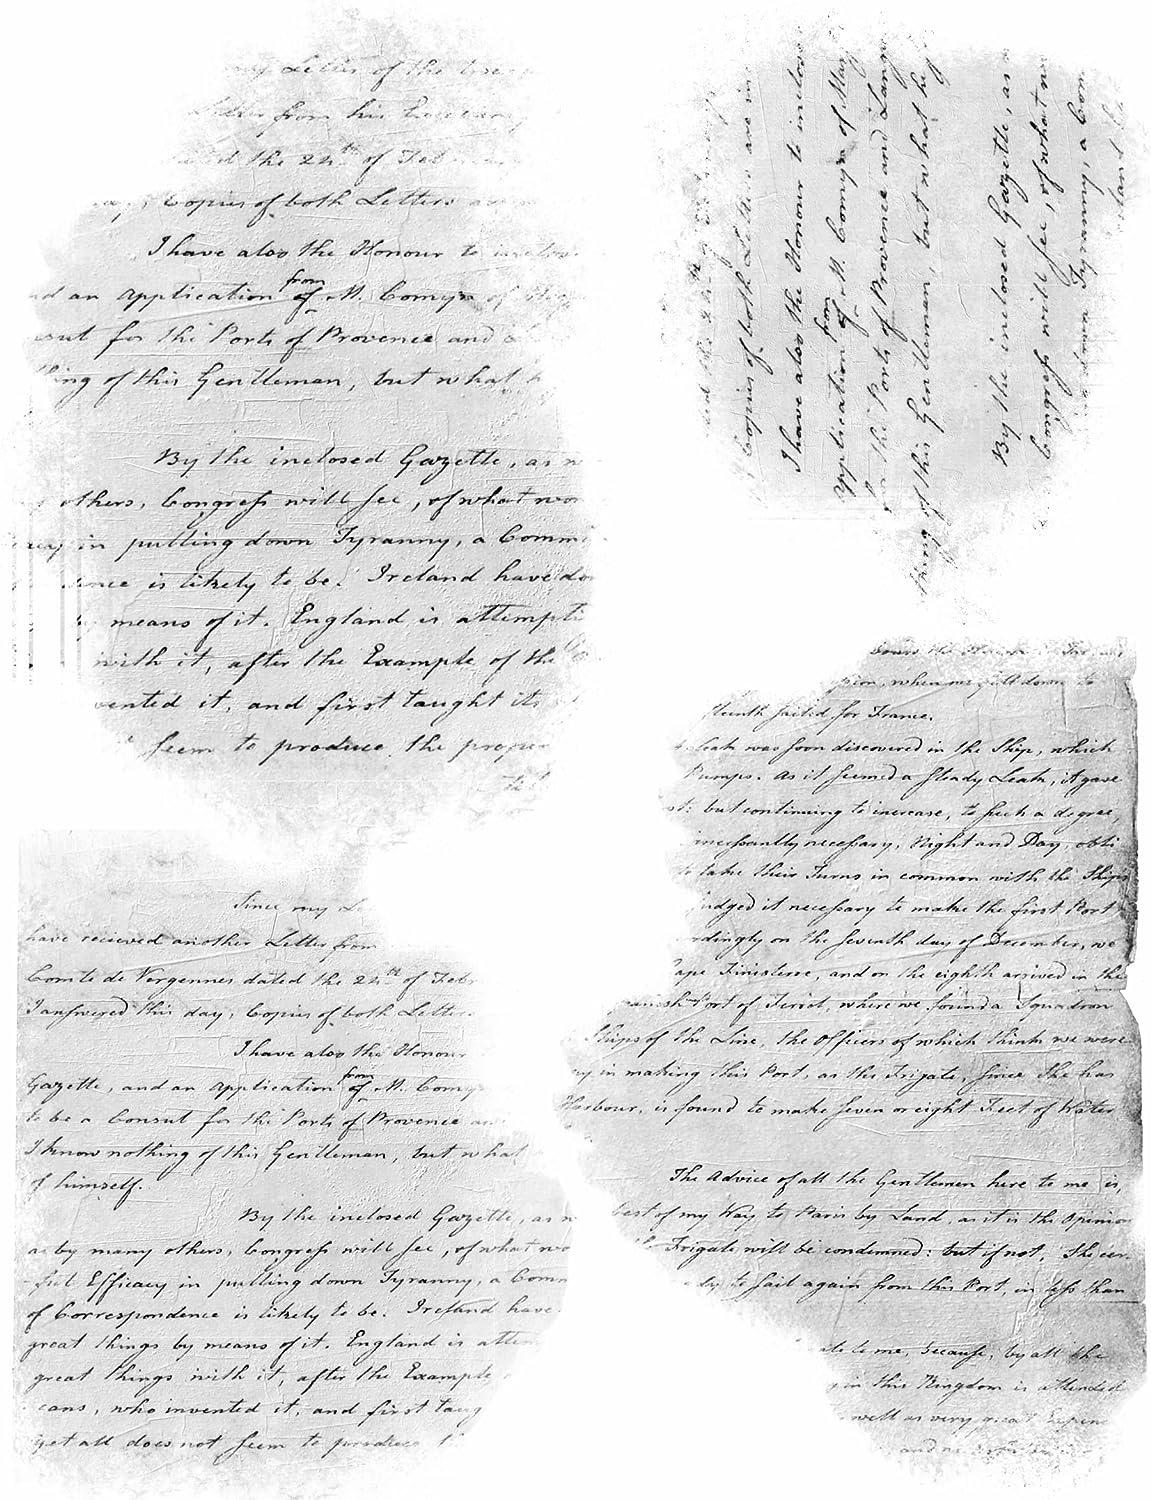 my Letter of the
Letter from his Excellency
dated the 24th of Feb
Copies of both Letters are
I have also the Honour to inclose
nd an application from of M. Comyn of
sul for the Ports of Provence and
thing of this Gentleman, but what h
By the inclosed Gazette, as
others, Congress will see, of what won
cacy in putting down Tyranny, a Comm
ence is likely to be. Ireland have do
by means of it. England is attempti
with it, after the Example of the
vented it, and first taught its
seem to produce the proper
ated the 24th
Copies of both Letters are in
I have also the Honour to inclose
application from of M. Comyn of Mar
for the Ports of Provence and Lang
thing of this Gentleman, but what he
By the inclosed Gazette, as
Congress will see, of what w
down Tyranny, a Com
Since my Le
have recieved another Letter from
Comte de Vergennes dated the 24th of Febr
I answered this day, Copies of both Letter
I have also the Honour
Gazette, and an application from of M. Comyn
to be a Consul for the Ports of Provence an
I know nothing of this Gentleman, but what
of himself.
By the inclosed Gazette, as
as by many others, Congress will see, of what wo
-ful Efficacy in putting down Tyranny, a Comm
of Correspondence is likely to be. Ireland have
great things by means of it. England is attem
great things with it, after the Example
cans, who invented it, and first taug
yet all does not seem to produce t
when we fell down to
fteenth sailed for France.
Leak was soon discovered in the Ship, which
Pumps. As it seemed a steady Leak, it gave
but continuing to increase, to such a degree,
incessantly necessary, Night and Day, obli
to take their Turns in common with the Ships
judged it necessary to make the first Port
rdingly on the seventh day of December, we
Cape Finisterre, and on the eighth arrived in the
anish Port of Ferrol, where we found a Squadron
Ships of the Line, the Officers of which think we were
in making this Port, as the Frigate, since She has
Harbour, is found to make seven or eight Feet of Water
The Advice of all the Gentlemen here to me is,
best of my Way to Paris by Land, as it is the Opinion
Frigate will be condemned: but if not, She cer
ly to sail again from this Port, in less than
ate to me, because, by all the
in this Kingdom is attended
well as very great Expence
and no